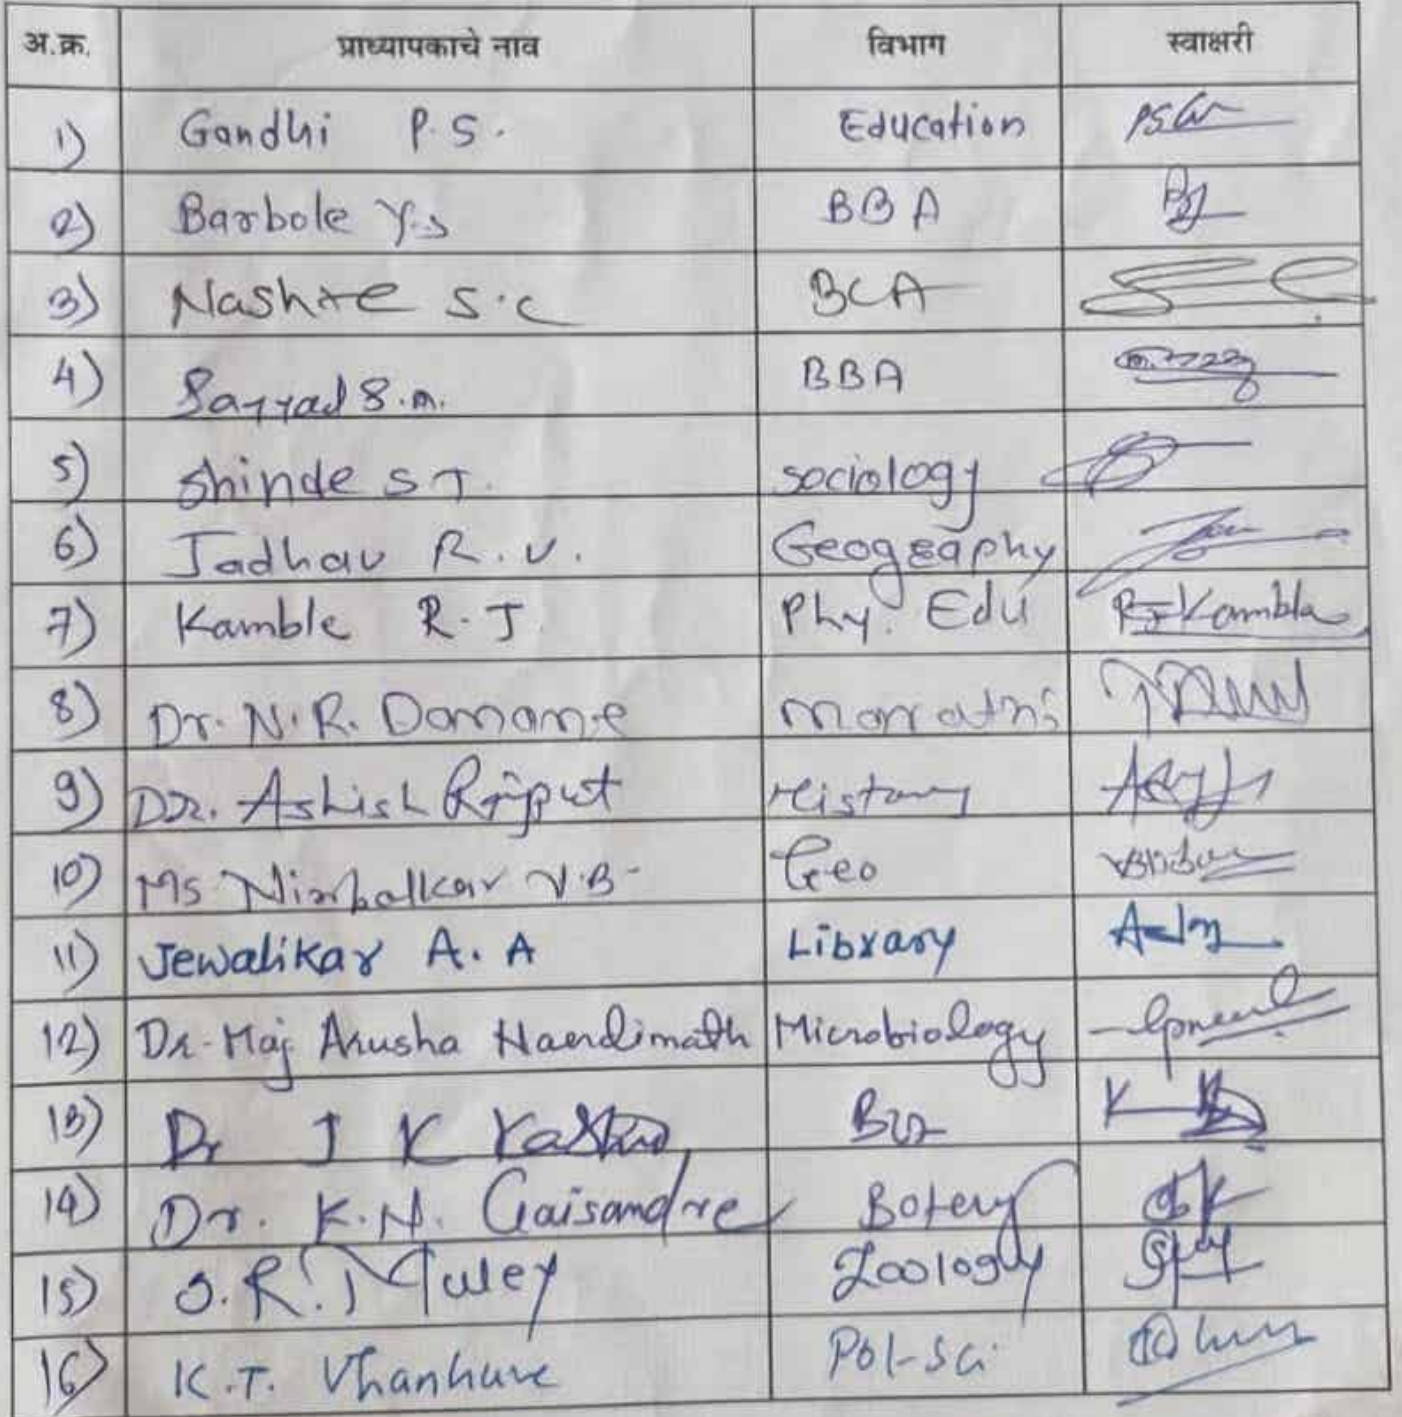 अ.क्र. प्राध्यापकाचे नाव विभाग स्वाक्षरी
1) Gandhi P.S. Education
2) Barbole Y.S BBA
3) Nashte S.C BCA
4) Sayyad S.M. BBA
5) Shinde S T. Sociology
6) Jadhav R.V. Geography
7) Kamble R.J. Phy. Edu RJKamble
8) Dr. N.R. Danane Marathi
9) Dr. Ashish Rajput History
10) Ms Nimbalkar V.B. Geo
11) Jewalikar A. A Library
12) Dr. Maj Anusha Microbiology
13) Dr J K
14) Dr. K.N. Gaisamdre
15) S.R. Muley Zoology
16) K.T. Vhanhuve Pol-Sci